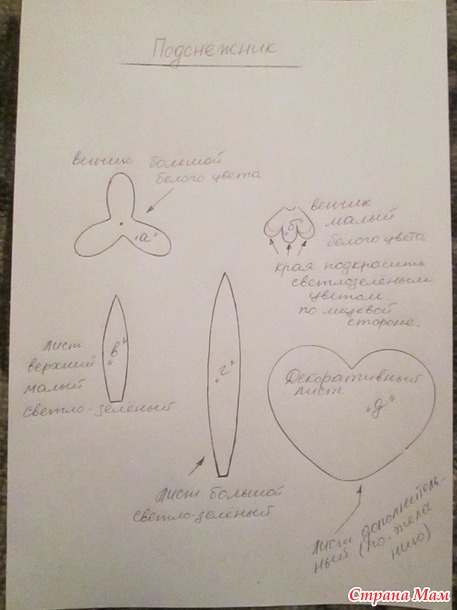 Подснежник
венчик большой
белого цвета
"а"
венчик
малый
белого цвета
"б"
края подкрасить
светлозеленым
цветом
по лицевой
стороне.
Лист
верхний
малый
светло-зеленый
"в"
"г"
Лист большой
светло-зеленый
Декоративный
лист
"д"
Лист дополнитель-
ный (по жела
нию)
Страна Мам